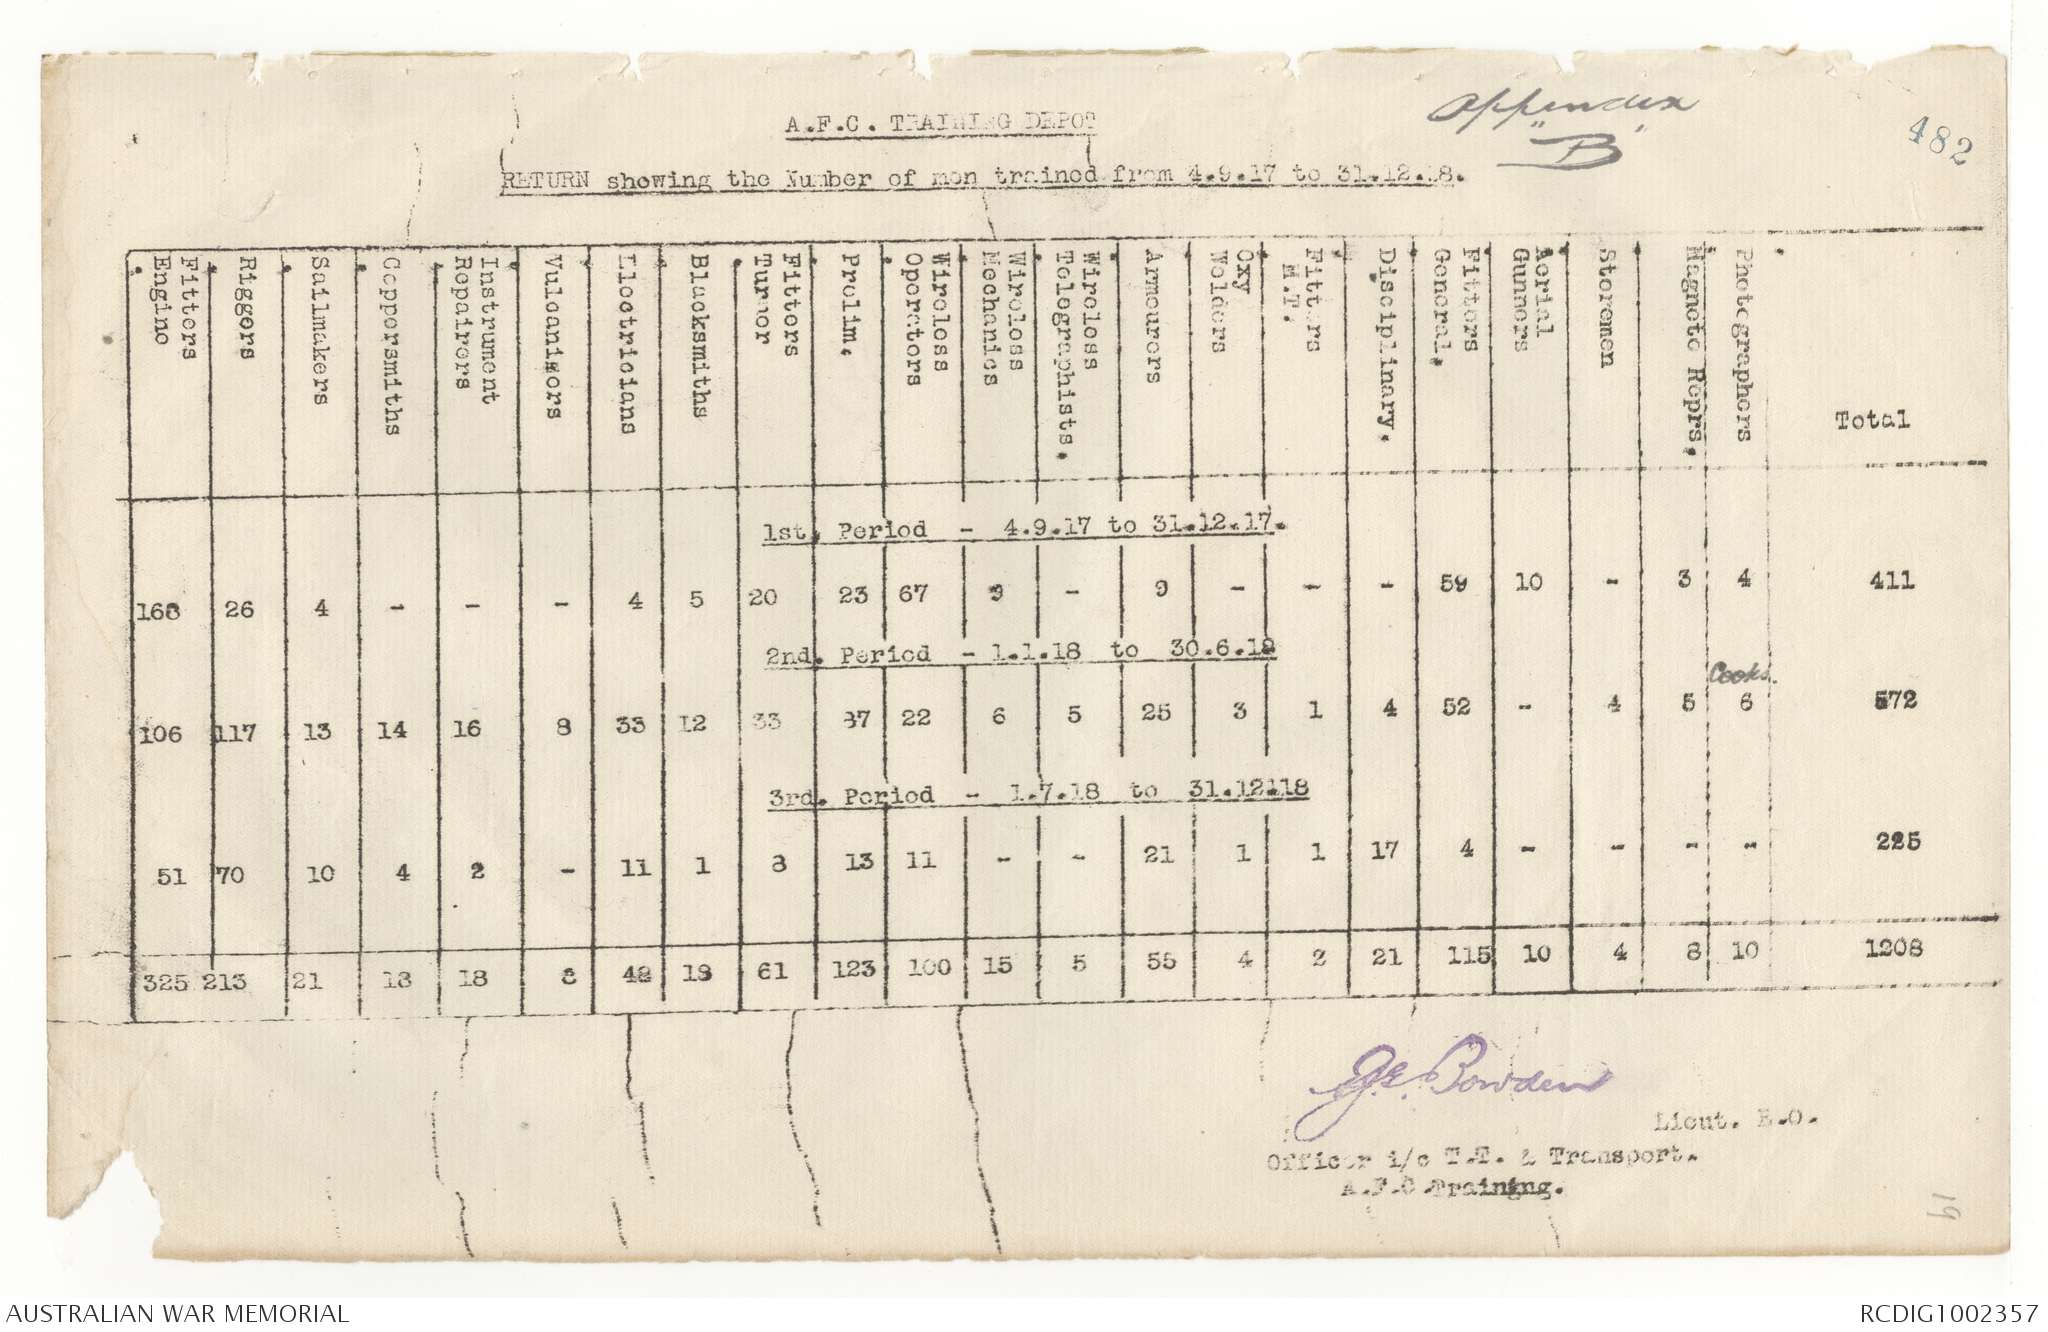 Appendix
"B"
482
A.F.C. TRAINING DEPOT
RETURN showing the Number of men trained from 4.9.17 to 31.12.18.
Fitters Engine | Riggers | Sailmakers | Coppersmiths | Instrument Repairers | Vulcanisers | Electricians | Blacksmiths | Fitters Turner | Prelim. | Wireless Operators | Wireless Mechanics | Wireless Telegraphists. | Armourers | Oxy Welders | Fitters M.T. | Disciplinary. | Fitters General. | Aerial Gunners | Storemen | Magneto Reprs. | Photographers | Total
1st. Period - 4.9.17 to 31.12.17.
168 26 4 - - - 4 5 20 23 67 9 - 9 - - - 59 10 - 3 4 411
2nd. Period - 1.1.18 to 30.6.18
Cooks.
106 117 13 14 16 8 33 12 33 87 22 6 5 25 3 1 4 52 - 4 5 6 572
3rd. Period - 1.7.18 to 31.12.18
51 70 10 4 2 - 11 1 8 13 11 - - 21 1 1 17 4 - - - - 225
325 213 21 18 18 8 48 18 61 123 100 15 5 55 4 2 21 115 10 4 8 10 1208
J.E. Bowden
Lieut. E.O.
Officer i/c T.T. & Transport.
A.F.C Training.
19
AUSTRALIAN WAR MEMORIAL
RCDIG1002357